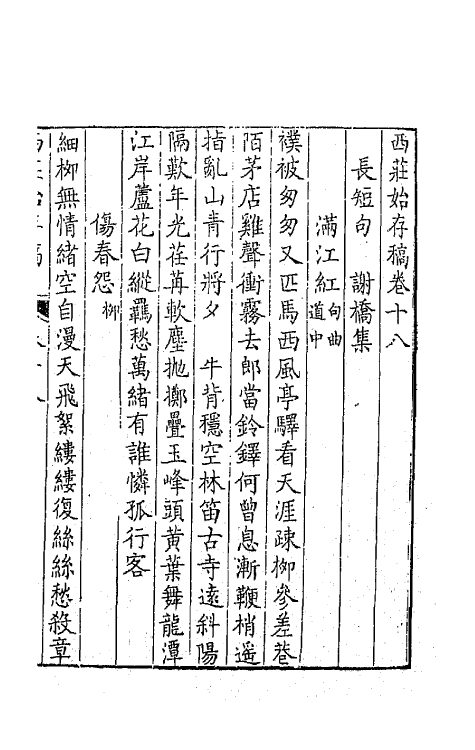 西莊始存稿卷十八
長短句　謝橋集
滿江紅句曲道中
襆被匆匆又匹馬西風亭驛看天涯疎柳參差巷
陌茅店雞聲衝霧去郎當鈴鐸何曾息漸鞭梢遥
指亂山青行將夕　牛背穩空林笛古寺遠斜陽
隔歎年光荏苒軟塵抛擲疊玉峰頭黄葉舞龍潭
江岸蘆花白縱羈愁萬緒有誰憐孤行客
傷春怨柳
細柳無情緒空自漫天飛絮縷縷復絲絲愁殺章